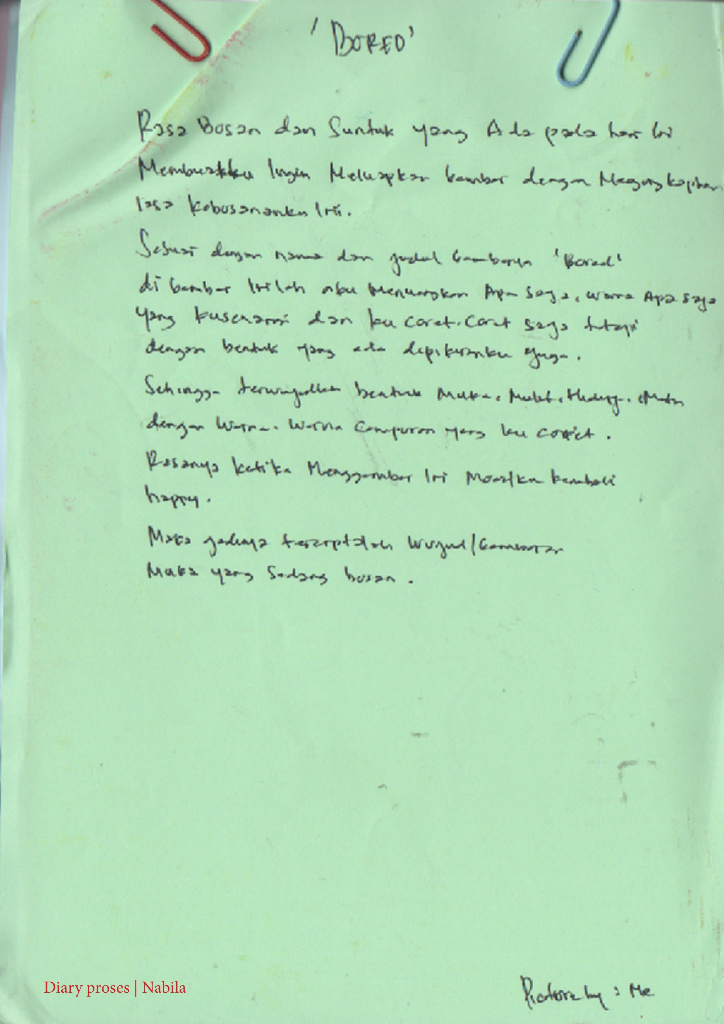 'BORED'
Rasa Bosan dan Suntuk yang Ada pada hari Ini
Membuatku Ingin Meluapkan Gambar dengan
rasa kebosananku Ini.
Sesuai dengan nama dan judul Gambarnya 'Bored'
di Gambar Inilah aku Menuangkan Apa saja, warna Apa saja
yang kusenangi dan ku Coret-Coret saja tetapi
dengan bentuk yang ada dipikiranku juga.
Sehingga terwujudlah bentuk Muka, Mulut, Hidung, Mata
dengan Warna-Warna Campuran yang ku Coret.
Rasanya ketika Menggambar Ini Moodku kembali
happy.
Maka jadinya terciptalah Wujud/Gambaran
Muka yang Sedang bosan.
Diary proses | Nabila
Picture by : Me